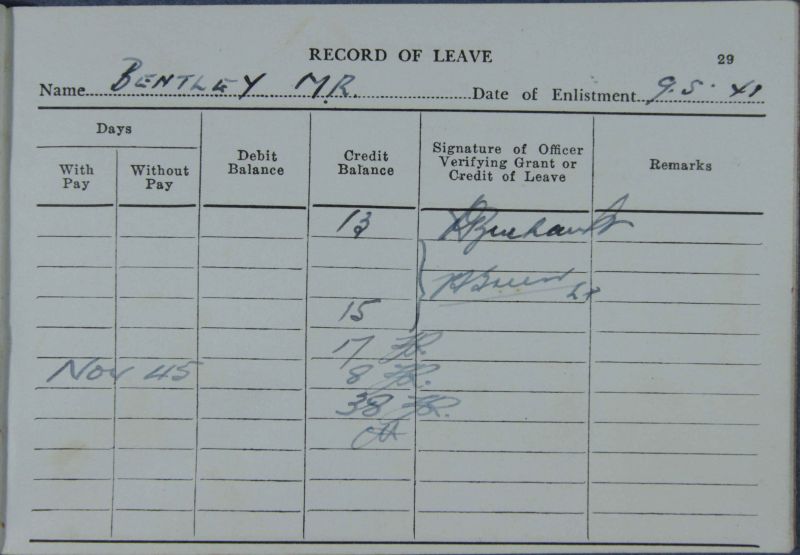 RECORD OF LEAVE 29
Name BENTLEY M.R. Date of Enlistment 9.5.41
Days
With Pay
Without Pay
Debit Balance
Credit Balance
Signature of Officer Verifying Grant or Credit of Leave
Remarks
13
15
17
Nov 45 8
38